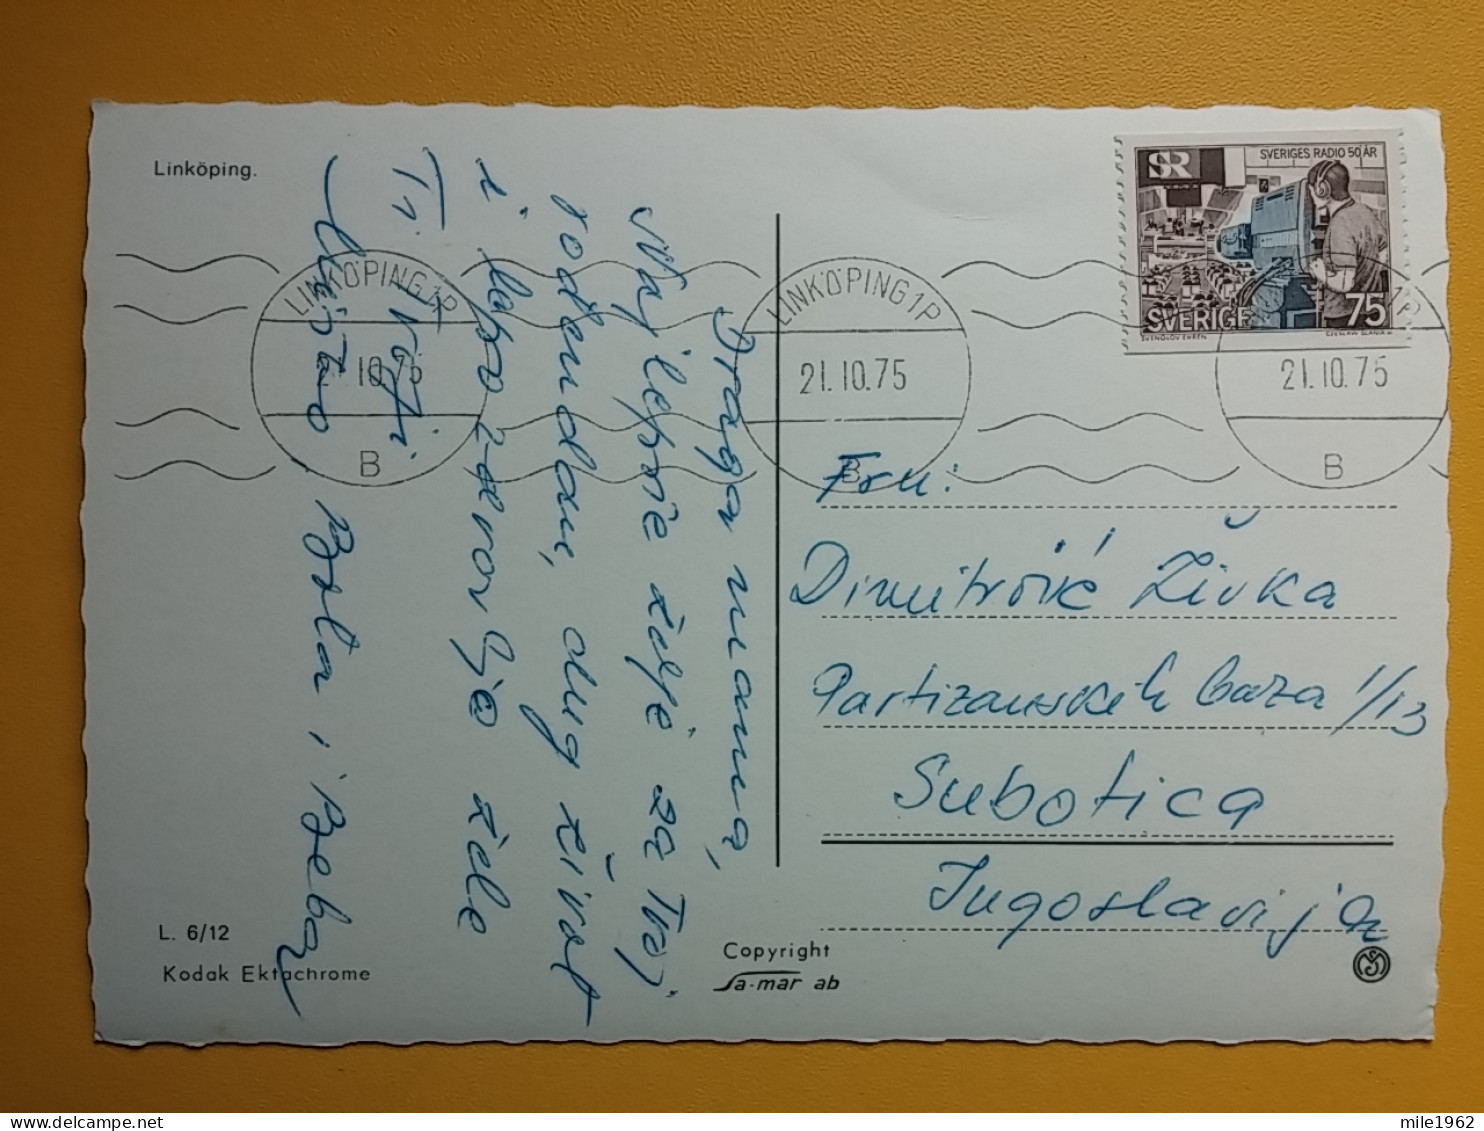 Linköping.
SR
SVERIGES RADIO 50 ÅR
SVERIGE 75
SVENOLOV EHRÉN
CZESLAW SLANIA SC
LINKÖPING 1P
21.10.75
B
LINKÖPING 1P
21.10.75
B
1P
21.10.75
B
Draga mama,
Najlepše želje za Tvoj
rođendan, dug život
i lepo zdravlje žele
Ti Tvoji
Bata i Beba
Fru:
Dimitrović Živka
Partizanskih baza 1/13
Subotica
Jugoslavija
L. 6/12
Kodak Ektachrome
Copyright
Sa-mar ab
mile1962